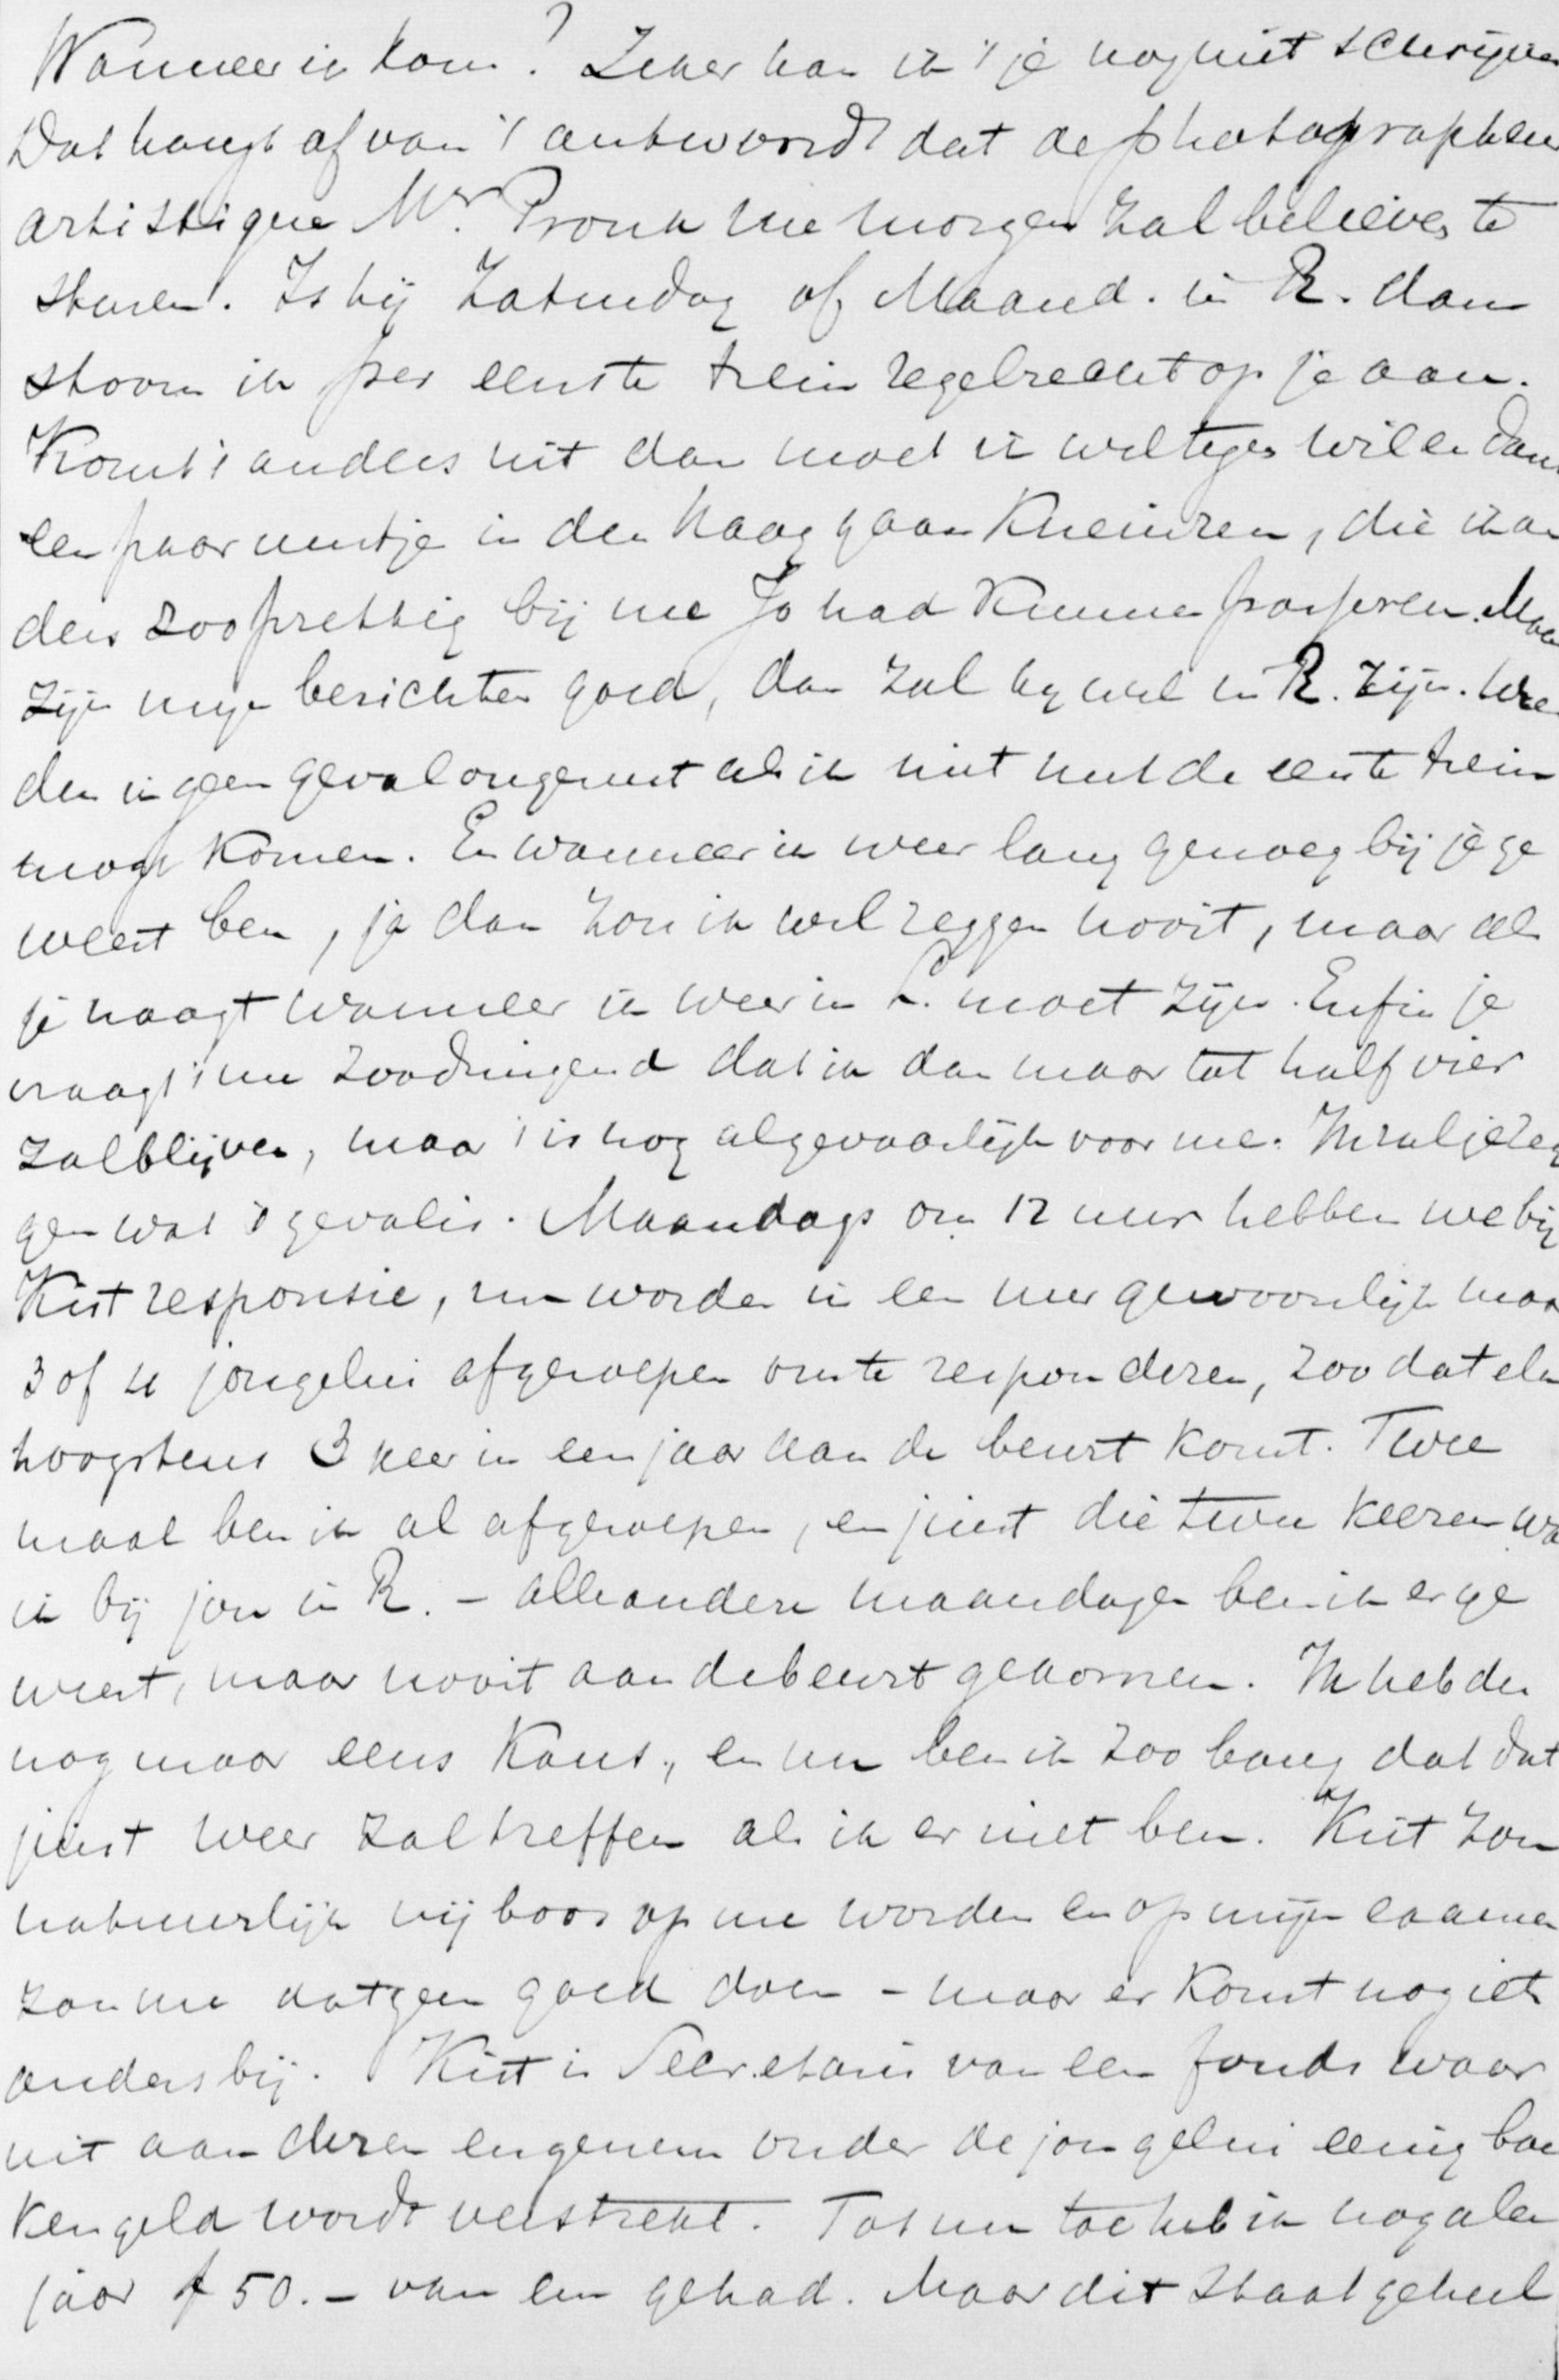 Wanneer ik kom? Zeker kan ik 't je nog niet schrijven
Dat hangt af van 't antwoord dat de photographeur
artistique Mr. Pronk me morgen zal believen te
sturen. Is hij Zaturdag of Maand. in R. dan
stoom ik per eerste trein regelrecht op je aan.
Komt 't anders uit dan moet ik wel tegen wil en dank
een paar uurtje in den Haag gaan kneuzen, die ik an
ders zoo prettig bij me Jo had kunnen passeeren. Maar
zijn mijn berichten goed, dan zal hij wel in R. zijn. Wor
den in geen geval ongerust als ik niet met de eerste trein
mogt komen. En wanneer ik weer lang genoeg bij je ge
weest ben, ja dan zou ik wel zeggen nooit, maar als
je vraagt wanneer ik weer in L. moet zijn. Enfin je
vraagt 't nu zoo dringend dat ik dan maar tot half vier
zal blijven, maar 't is nog al gevaarlijk voor me. Ik zal je zeg
gen wat 't geval is. Maandags om 12 uur hebben we bij
Kist responsie, nu worden in een uur gewoonlijk maar
3 of 4 jongelui afgeroepen om te responderen, zoodat elk
hoogstens 3 keer in een jaar aan de beurt komt. Twee
maal ben ik al afgeroepen, en juist die twee keeren was
ik bij jou in R. - alle andere maandagen ben ik er ge
weest, maar nooit aan de beurt gekomen. Ik heb dus
nog maar eens kans, en nu ben ik zoo bang dat dat
juist weer zal treffen als ik er niet ben. Kist zou
natuurlijk vrij boos op me worden en op mijn examen
zou me dat geen goed doen - maar er komt nog iets
anders bij. Kist is Secretaris van een fonds waar
uit aan dezen en genen onder de jongelui eenig boe
kengeld wordt verstrekt. Tot nu toe heb ik nog alle
jaar f 50.- van hem gehad. Maar dit staat geheel